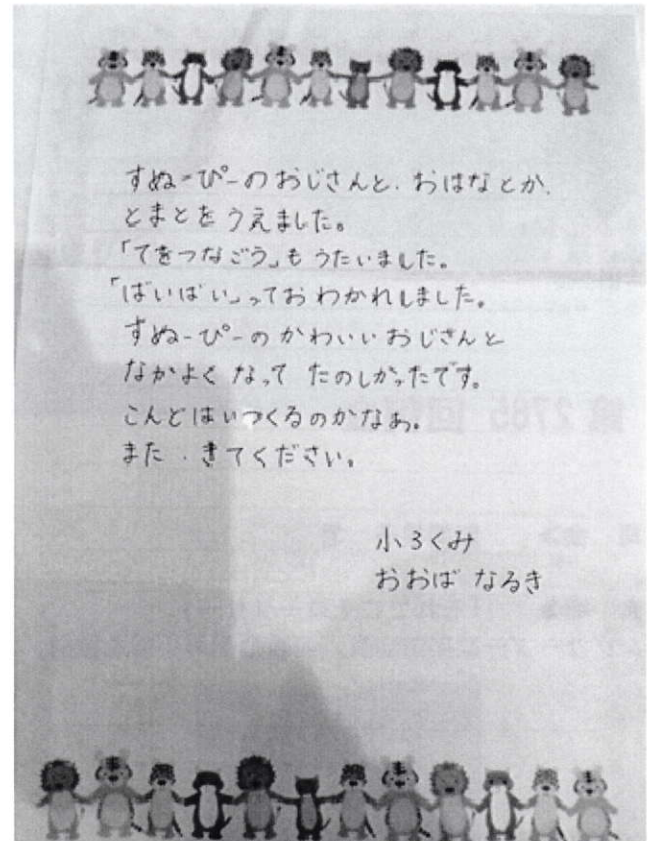 すぬーぴーのおじさんと、おはなとか、
とまとをうえました。
「てをつなごう」もうたいました。
「ばいばい」っておわかれしました。
すぬーぴーのかわいいおじさんと
なかよくなって たのしかったです。
こんどはいつくるのかなぁ。
また、きてください。
小3くみ
おおば なるき
第2785回例会